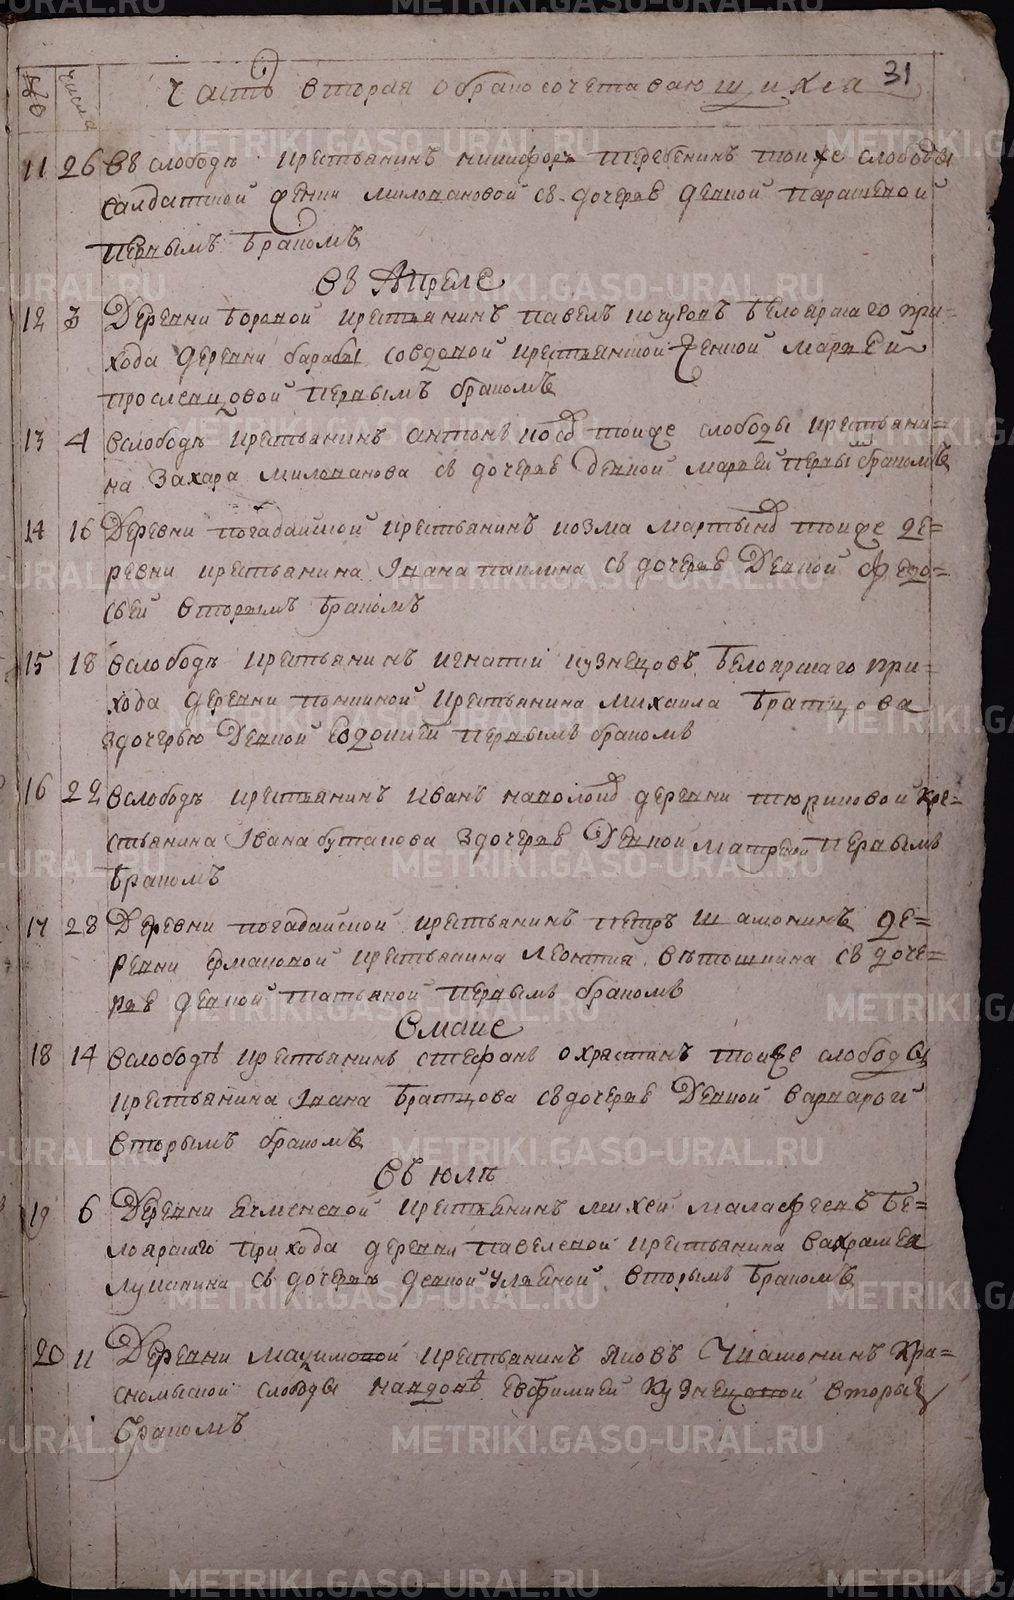 31
число
Часть вторая о бракосочетавающихся
11 26 Въ слободѣ крестьянинъ никифоръ теребенинъ тоиже слободы
салдатской жены миловановой съ дочерье девкой параскевой
первымъ бракомъ
въ Апреле
12 3 Деревни боровой крестьянинъ павелъ кочневъ белоярскаго при=
хода деревни барабы совдовой крестьянской женкой марьей
прослековой первымъ бракомъ
13 4 вслободѣ крестьянинъ антонъ тоиже слободы крестьяни=
на Захара милованова съ дочерье девкой марьей первы бракомъ
14 16 Деревни погадайской крестьянинъ козма мартынов тоиже де=
ревни крестьянина Ивана паклина съ дочерье Девкой федо=
сьей вторымъ бракомъ
15 18 вслободѣ крестьянинъ игнатий кузнецовъ белоярскаго при=
хода деревни крестьянина михаила братцова
здочерью Девкой евдокией первымъ бракомъ
16 22 вслободѣ крестьянинъ иванъ деревни тюриковой кре=
стьянина Ивана бутакова здочерье Девкой матреной первымъ
бракомъ
17 28 Деревни погадайской крестьянинъ петръ шамонинъ де=
ревни ермаковой крестьянина леонтиа ветошкина съ доче=
рье девкой татьяной первымъ бракомъ
вмаие
18 14 вслободѣ крестьянинъ стефанъ тоиже слободы
крестьянина Ивана братцова съ дочерье Девкой варварой
вторымъ бракомъ
въ июлѣ
19 6 Деревни ячменевой крестьянинъ михей малафеевъ бе=
лоярскаго прихода деревни павелевой крестьянина вахрамея
лукинина съ дочерью девкой ульяной вторымъ бракомъ
20 11 Деревни максимовой крестьянинъ яковъ Чкамонинъ кра=
сномыской слободы навдовѣ евфимией кузнецовой вторы
бракомъ
METRIKI.GASO-URAL.RU